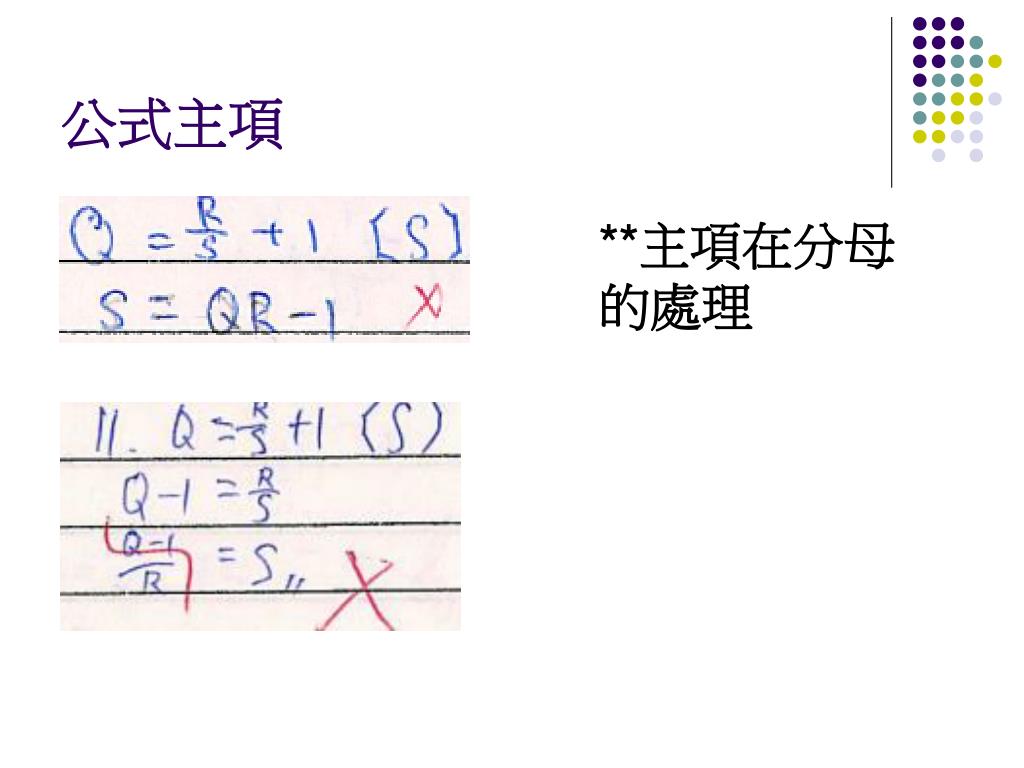 公式主項
Q = R/S + 1 [S]
S = QR - 1
11. Q = R/S + 1 (S)
Q - 1 = R/S
Q-1/R = S,,
**主項在分母
的處理